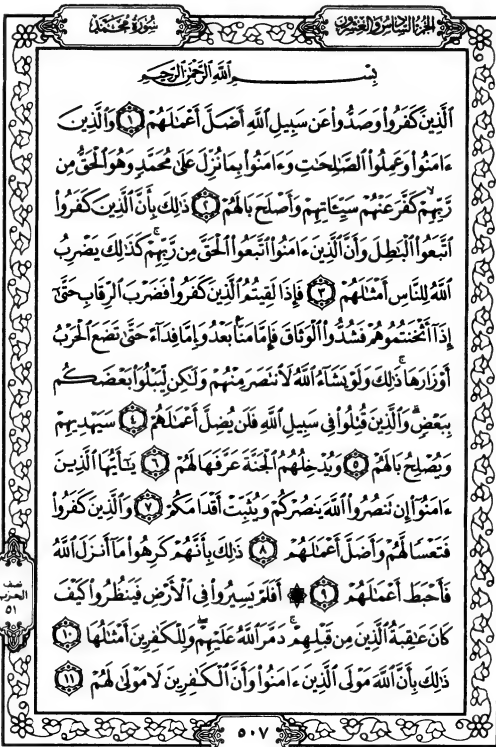 الجزء السادس والعشرون سورة محمد
بِسْمِ اللَّهِ الرَّحْمَٰنِ الرَّحِيمِ
الَّذِينَ كَفَرُوا۟ وَصَدُّوا۟ عَن سَبِيلِ اللَّهِ أَضَلَّ أَعْمَٰلَهُمْ ١ وَالَّذِينَ
ءَامَنُوا۟ وَعَمِلُوا۟ الصَّٰلِحَٰتِ وَءَامَنُوا۟ بِمَا نُزِّلَ عَلَىٰ مُحَمَّدٍ وَهُوَ الْحَقُّ مِن
رَّبِّهِمْ ۙ كَفَّرَ عَنْهُمْ سَيِّـَٔاتِهِمْ وَأَصْلَحَ بَالَهُمْ ٢ ذَٰلِكَ بِأَنَّ الَّذِينَ كَفَرُوا۟
اتَّبَعُوا۟ الْبَٰطِلَ وَأَنَّ الَّذِينَ ءَامَنُوا۟ اتَّبَعُوا۟ الْحَقَّ مِن رَّبِّهِمْ ۚ كَذَٰلِكَ يَضْرِبُ
اللَّهُ لِلنَّاسِ أَمْثَٰلَهُمْ ٣ فَإِذَا لَقِيتُمُ الَّذِينَ كَفَرُوا۟ فَضَرْبَ الرِّقَابِ حَتَّىٰٓ
إِذَآ أَثْخَنتُمُوهُمْ فَشُدُّوا۟ الْوَثَاقَ فَإِمَّا مَنًّۢا بَعْدُ وَإِمَّا فِدَآءً حَتَّىٰ تَضَعَ الْحَرْبُ
أَوْزَارَهَا ۚ ذَٰلِكَ وَلَوْ يَشَآءُ اللَّهُ لَانتَصَرَ مِنْهُمْ وَلَٰكِن لِّيَبْلُوَا۟ بَعْضَكُم
بِبَعْضٍ ۗ وَالَّذِينَ قُتِلُوا۟ فِى سَبِيلِ اللَّهِ فَلَن يُضِلَّ أَعْمَٰلَهُمْ ٤ سَيَهْدِيهِمْ
وَيُصْلِحُ بَالَهُمْ ٥ وَيُدْخِلُهُمُ الْجَنَّةَ عَرَّفَهَا لَهُمْ ٦ يَٰٓأَيُّهَا الَّذِينَ
ءَامَنُوٓا۟ إِن تَنصُرُوا۟ اللَّهَ يَنصُرْكُمْ وَيُثَبِّتْ أَقْدَامَكُمْ ٧ وَالَّذِينَ كَفَرُوا۟
فَتَعْسًا لَّهُمْ وَأَضَلَّ أَعْمَٰلَهُمْ ٨ ذَٰلِكَ بِأَنَّهُمْ كَرِهُوا۟ مَآ أَنزَلَ اللَّهُ
فَأَحْبَطَ أَعْمَٰلَهُمْ ٩ ۞ أَفَلَمْ يَسِيرُوا۟ فِى الْأَرْضِ فَيَنظُرُوا۟ كَيْفَ
كَانَ عَٰقِبَةُ الَّذِينَ مِن قَبْلِهِمْ ۚ دَمَّرَ اللَّهُ عَلَيْهِمْ ۖ وَلِلْكَٰفِرِينَ أَمْثَٰلُهَا ١٠
ذَٰلِكَ بِأَنَّ اللَّهَ مَوْلَى الَّذِينَ ءَامَنُوا۟ وَأَنَّ الْكَٰفِرِينَ لَا مَوْلَىٰ لَهُمْ ١١
نصف
الحزب
٥١
٥٠٧